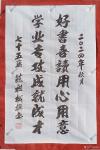 二〇二四年秋月
好书善读用心用意
学业专攻成就成才
七十五叟